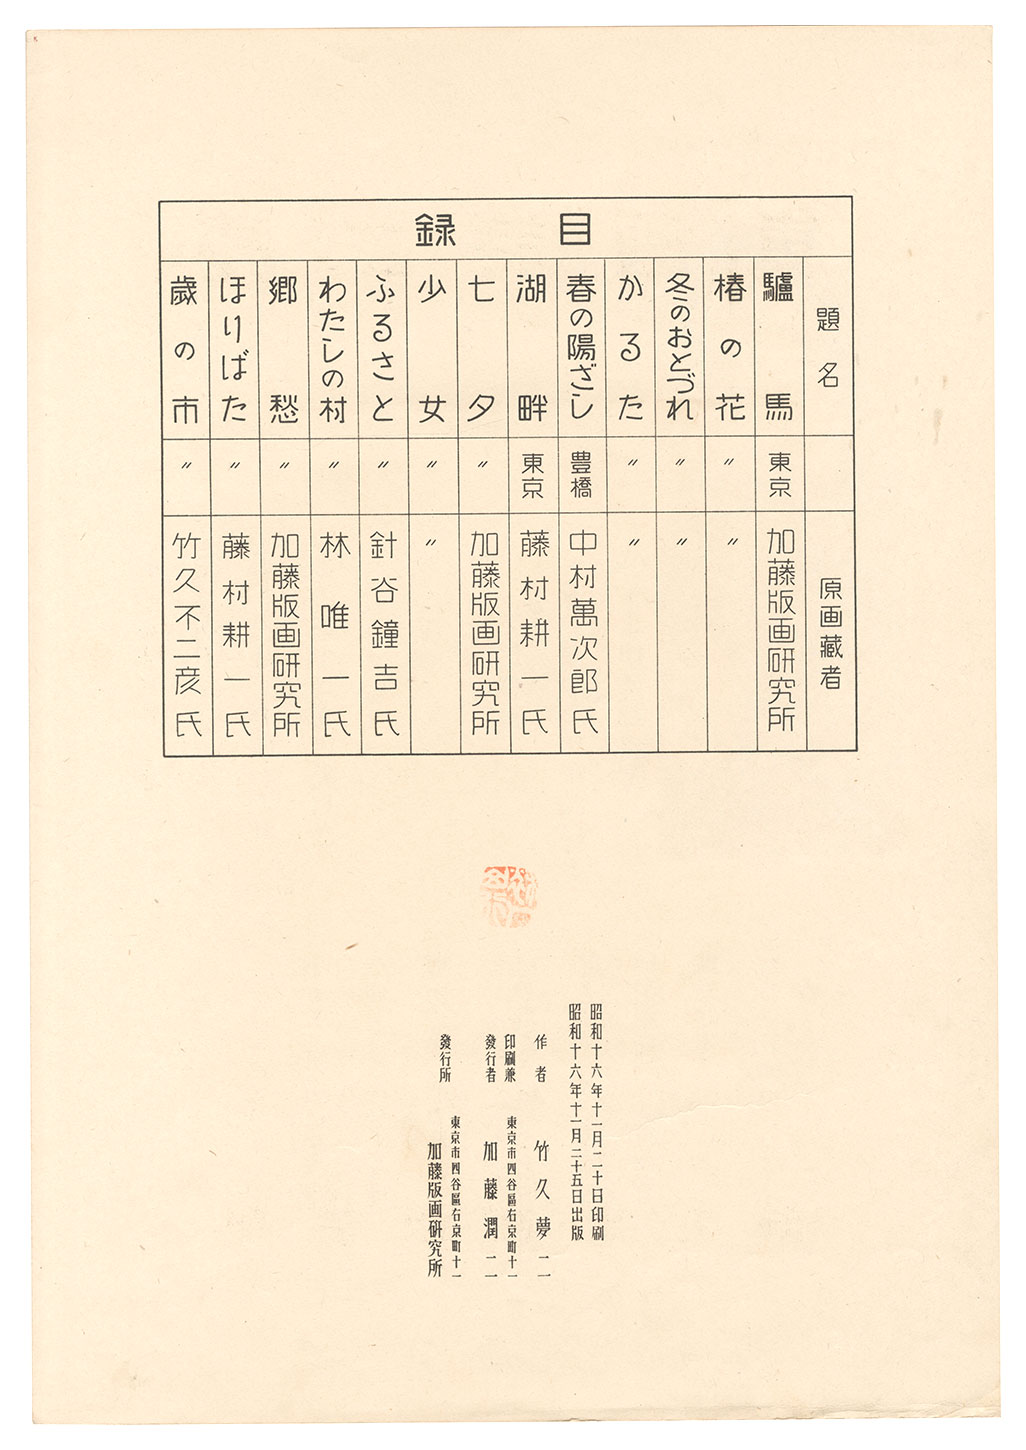 目録
題名 原画藏者
驢馬 東京 加藤版画研究所
椿の花 〃 〃
冬のおとづれ 〃 〃
かるた 〃 〃
春の陽ざし 豊橋 中村萬次郎氏
湖畔 東京 藤村耕一氏
七夕 〃 加藤版画研究所
少女 〃 〃
ふるさと 〃 針谷鐘吉氏
わたしの村 〃 林唯一氏
郷愁 〃 加藤版画研究所
ほりばた 〃 藤村耕一氏
歳の市 〃 竹久不二彦氏
昭和十六年十一月二十日印刷
昭和十六年十一月二十五日出版
作者 竹久夢二
印刷兼 東京市四谷區右京町十一
發行者 加藤潤二
東京市四谷區右京町十一
發行所 加藤版画研究所